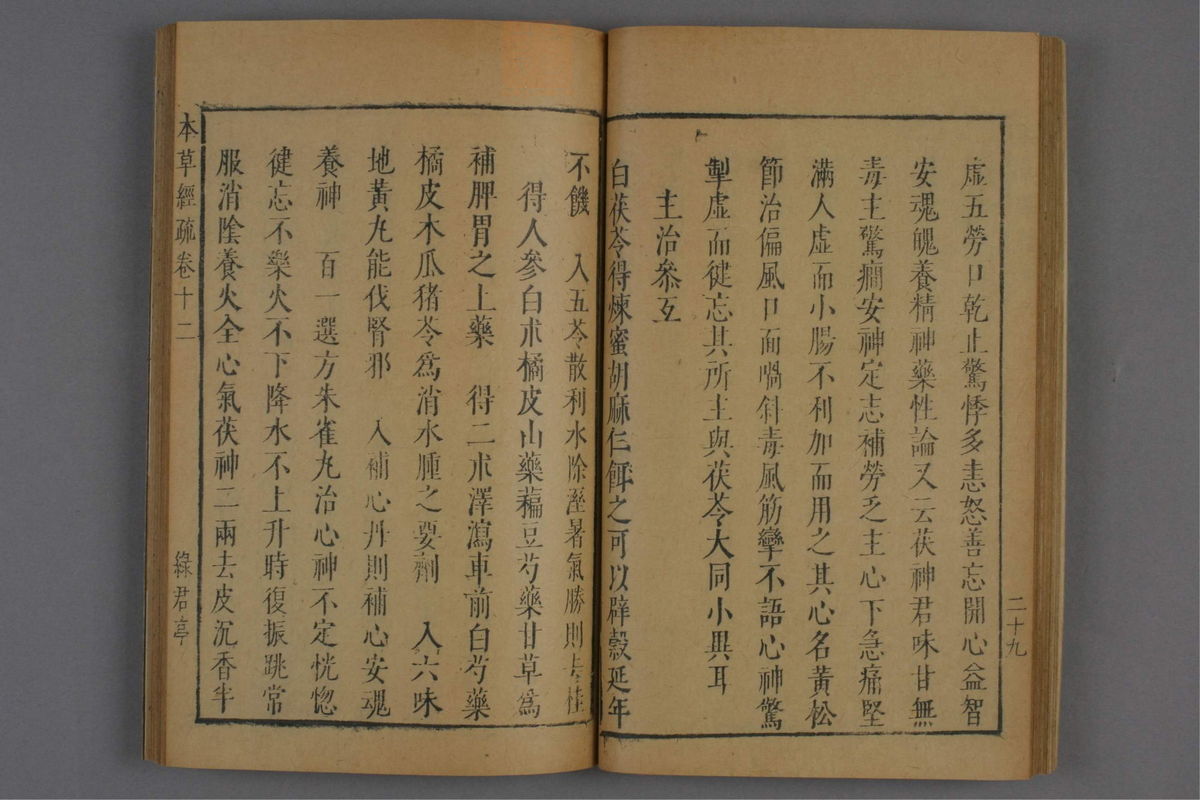 虛五勞口乾止驚悸多恚怒善忘開心益智
安魂魄養精神藥性論又云茯神君味甘無
毒主驚癇安神定志補勞乏主心下急痛堅
滿人虛而小腸不利加而用之其心名黃松
節治偏風口面喎斜毒風筋攣不語心神驚
掣虛而徤忘其所主與茯苓大同小異耳
主治叅互
白茯苓得煉蜜胡麻仁餌之可以辟穀延年
二十九
不饑 入五苓散利水除溼暑氣勝則去桂
得人參白朮橘皮山藥藊豆芍藥甘草爲
補脾胃之上藥 得二朮澤瀉車前白芍藥
橘皮木瓜猪苓爲消水腫之要劑 入六味
地黃丸能伐腎邪 入補心丹則補心安魂
養神 百一選方朱雀丸治心神不定恍惚
徤忘不樂火不下降水不上升時復振跳常
服消陰養火全心氣茯神二兩去皮沉香半
本草經疏卷十二
綠君亭